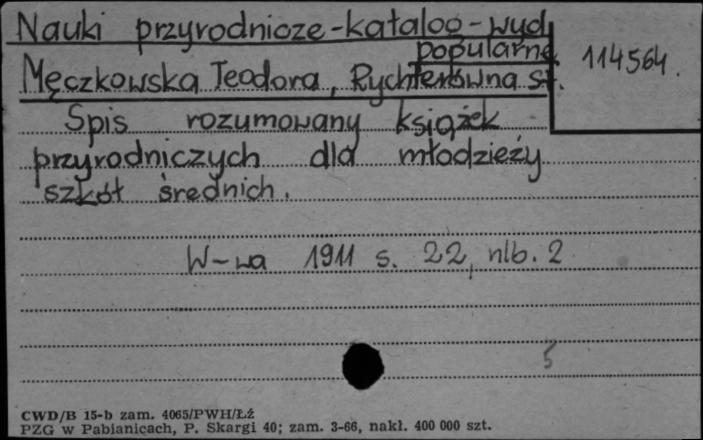 Nauki przyrodnicze-katalog-wyd.
popularne
114564.
Męczkowska Teodora, Rychterówna St.
Spis rozumowany książek
przyrodniczych dla młodzieży
szkół średnich.
W-wa 1911 s. 22, nlb. 2
5
CWD/B 15-b zam. 4065/PWH/Łź
PZG w Pabianicach, P. Skargi 40; zam. 3-66, nakł. 400 000 szt.